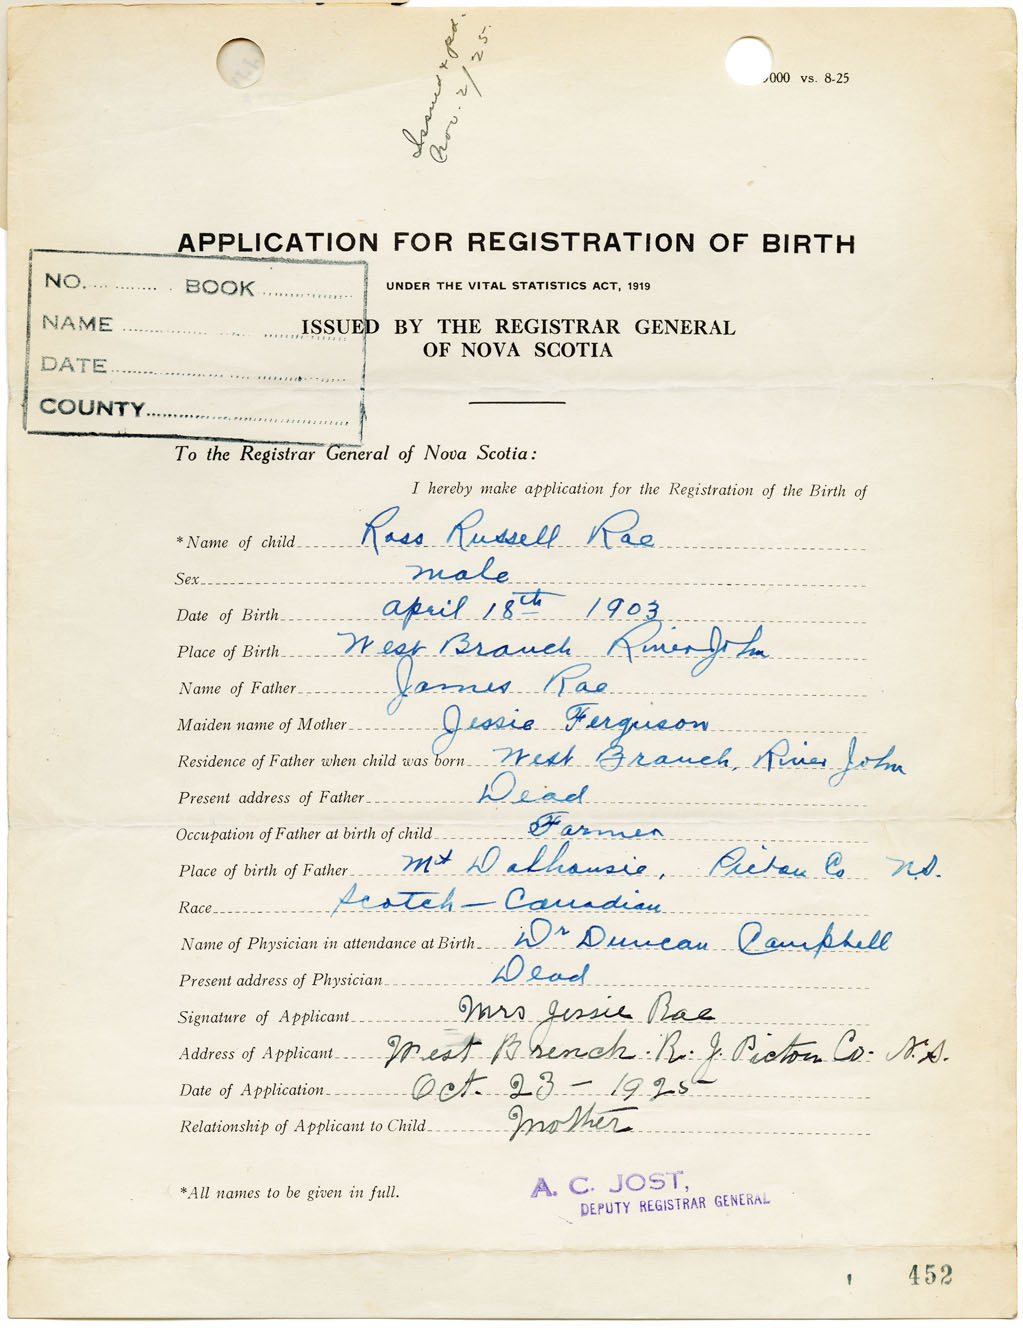 Issued & pd.
Nov. 2/25.
000 vs. 8-25
APPLICATION FOR REGISTRATION OF BIRTH
UNDER THE VITAL STATISTICS ACT, 1919
ISSUED BY THE REGISTRAR GENERAL
OF NOVA SCOTIA
NO. BOOK
NAME
DATE
COUNTY
To the Registrar General of Nova Scotia:
I hereby make application for the Registration of the Birth of
*Name of child Ross Russell Rae
Sex Male
Date of Birth April 18th 1903
Place of Birth West Branch River John
Name of Father James Rae
Maiden name of Mother Jessie Ferguson
Residence of Father when child was born West Branch, River John
Present address of Father Dead
Occupation of Father at birth of child Farmer
Place of birth of Father Mt Dalhousie, Pictou Co N.S.
Race Scotch – Canadian
Name of Physician in attendance at Birth Dr Duncan Campbell
Present address of Physician Dead
Signature of Applicant Mrs Jessie Rae
Address of Applicant West Brench. R. J. Pictou Co. N.S.
Date of Application Oct. 23 – 1925
Relationship of Applicant to Child Mother
*All names to be given in full.
A. C. JOST,
DEPUTY REGISTRAR GENERAL
452